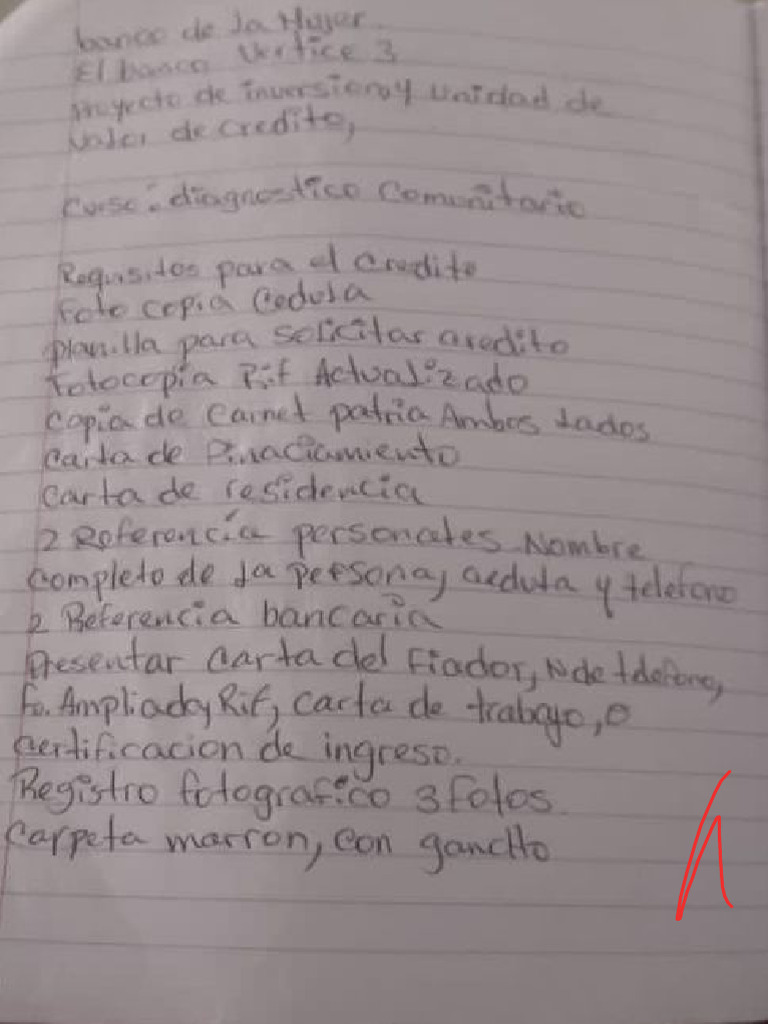 banco de la Mujer
El banco Vertice 3
Proyecto de inversion, y unidad de
Valor de credito,
Curso: diagnostico Comunitario
Requisitos para el Credito
Foto copia Cedula
planilla para solicitar credito
fotocopia Rif Actualizado
copia de Carnet patria Ambos lados
Carta de
Carta de residencia
2 Referencia personales Nombre
completo de la persona, cedula y telefono
2 Referencia bancaria
Presentar carta del fiador, N de telefono,
Fo. Ampliada, Rif, carta de trabajo, o
certificacion de ingreso.
Registro fotografico 3 fotos
Carpeta marron, con gancho